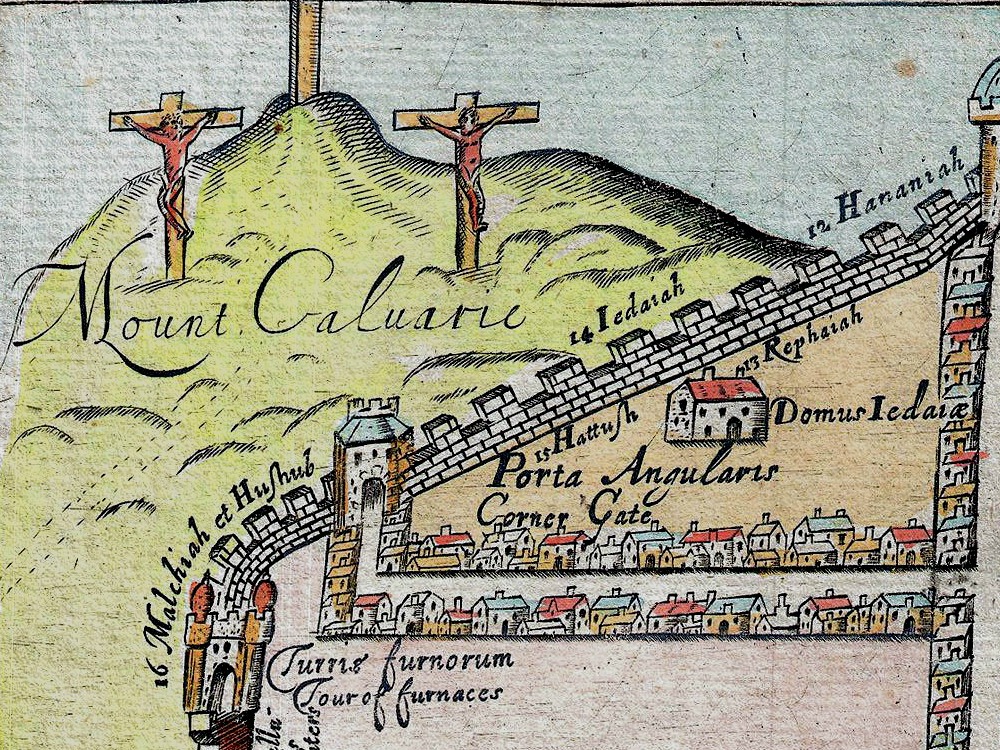 12 Hananiah
Mount Caluarie
14 Iedaiah
13 Rephaiah
Domus Iedaiæ
15 Hattush
Porta Angularis
Corner Gate
16 Malchiah et Hushub
Turris furnorum
Tour of furnaces